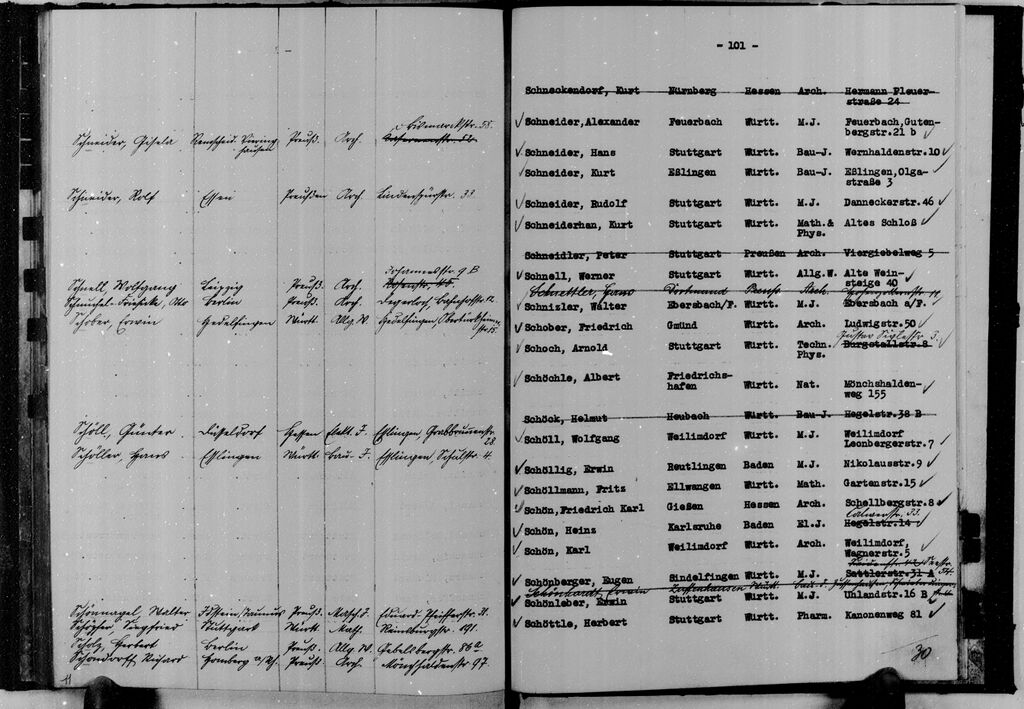 Bismarckstr. 55.
Schneider, Gisela Remscheid- Preuß. Arch.
hausen
Schneider, Rolf Essen Preußen Arch. Lindenspürstr. 33
Johannesstr. 9 B
Schnell, Wolfgang Leipzig Preuß. Arch.
Otto Berlin Preuß. Arch. Degerloch,
Schober, Erwin Hedelfingen Württ. Allg. W. Hedelfingen,
str. 15
Schöll, Günter Düsseldorf Hessen Elekt. J. Esslingen, Grabbrunnenstr.
28
Schöller, Hans Esslingen Württ. Bau-J. Esslingen, Schulstr. 4
Schönnagel, Walter Idstein/Taunus Preuß. Masch. J. Eduard Pfeifferstr.
Siegfried Stuttgart Württ. Math. 191.
Scholz, Herbert Berlin Preuß. Allg. W. Gebelsbergstr. 86a
Schondorff, Richard Homberg a/Rh. Preuß. Arch. Mönchhaldenstr. 97.
11
- 101 -
Schneckendorf, Kurt Nürnberg Hessen Arch. Hermann Pleuer-
straße 24
Schneider,Alexander Feuerbach Württ. M.J. Feuerbach,Guten-
bergstr.21 b
Schneider, Hans Stuttgart Württ. Bau-J. Wernhaldenstr.10
Schneider, Kurt Eßlingen Württ. Bau-J. Eßlingen,Olga-
straße 3
Schneider, Rudolf Stuttgart Württ. M.J. Danneckerstr.46
Schneiderhan, Kurt Stuttgart Württ. Math.& Altes Schloß
Phys.
Schneidler, Peter Stuttgart Preußen Arch. Viergiebelweg 5
Schnell, Werner Stuttgart Württ. Allg.W. Alte Wein-
steige 40
Schnettler, Hans Dortmund Preuß. Arch.
Schnizler, Walter Ebersbach/F. Württ. M.J. Ebersbach a/F.
Schober, Friedrich Gmünd Württ. Arch. Ludwigstr.50
Gustav Siglestr.
Schoch, Arnold Stuttgart Württ. Techn. Burgstallstr.8
Phys.
Schöchle, Albert Friedrichs-
hafen Württ. Nat. Mönchshalden-
weg 155
Schöck, Helmut Heubach Württ. Bau-J. Hegelstr.38 B
Schöll, Wolfgang Weilimdorf Württ. M.J. Weilimdorf
Leonbergerstr.7
Schöllig, Erwin Reutlingen Baden M.J. Nikolausstr.9
Schöllmann, Fritz Ellwangen Württ. Math. Gartenstr.15
Schön,Friedrich Karl Gießen Hessen Arch. Schellbergstr.8
Calwerstr. 33.
Schön, Heinz Karlsruhe Baden El.J. Hegelstr.14
Schön, Karl Weilimdorf Württ. Arch. Weilimdorf,
Wagnerstr.5
Schönberger, Eugen Sindelfingen Württ. M.J. Sattlerstr.31 A
Schönhardt, Erwin Zuffenhausen Württ.
Schönleber, Erwin Stuttgart Württ. M.J. Uhlandstr.16 B
Schöttle, Herbert Stuttgart Württ. Pharm. Kanonenweg 81
30